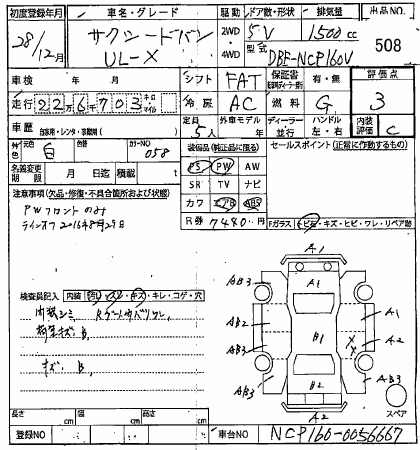 初度登録年月 車名・グレード 駆動 ドア数・形状 排気量 出品NO.
28/12月 サクシードバン UL-X 2WD 4WD 5V 1500cc 508
型式 DBE-NCP160V
車検 年 月 シフト FAT 保証書 有・無 評価点 3
走行 226703 キロ マイル 冷房 AC 燃料 G
車歴 自家用・レンタ・事業用( ) 定員 5人 外車モデル 年 ディーラー 並行 ハンドル 左・右 内装評価 C
外色 元色 白 カラーNO 058
装備品(純正品に限る) セールスポイント(正常に作動するもの)
名義変更期限 月 日迄 積載量 t
PS PW AW
SR TV ナビ
カワ エアB ABS
R券 7480円
注意事項(欠品・修復・不具合箇所および状態)
PWフロントのみ
ラインオフ2016年8月29日
Fガラス トビ・キズ・ヒビ・ワレ・リペア跡
検査員記入 内装 汚レ・スレ・キズ・キレ・コゲ・穴
内装シミ
キズ B,
A1
AB3 A1 AB3
AB2 A1
B1
AB3 XX A2
AB3 B2 AB3
A2
スペア
長さ cm 幅 cm 高さ cm
登録NO 車台NO NCP160-0056667